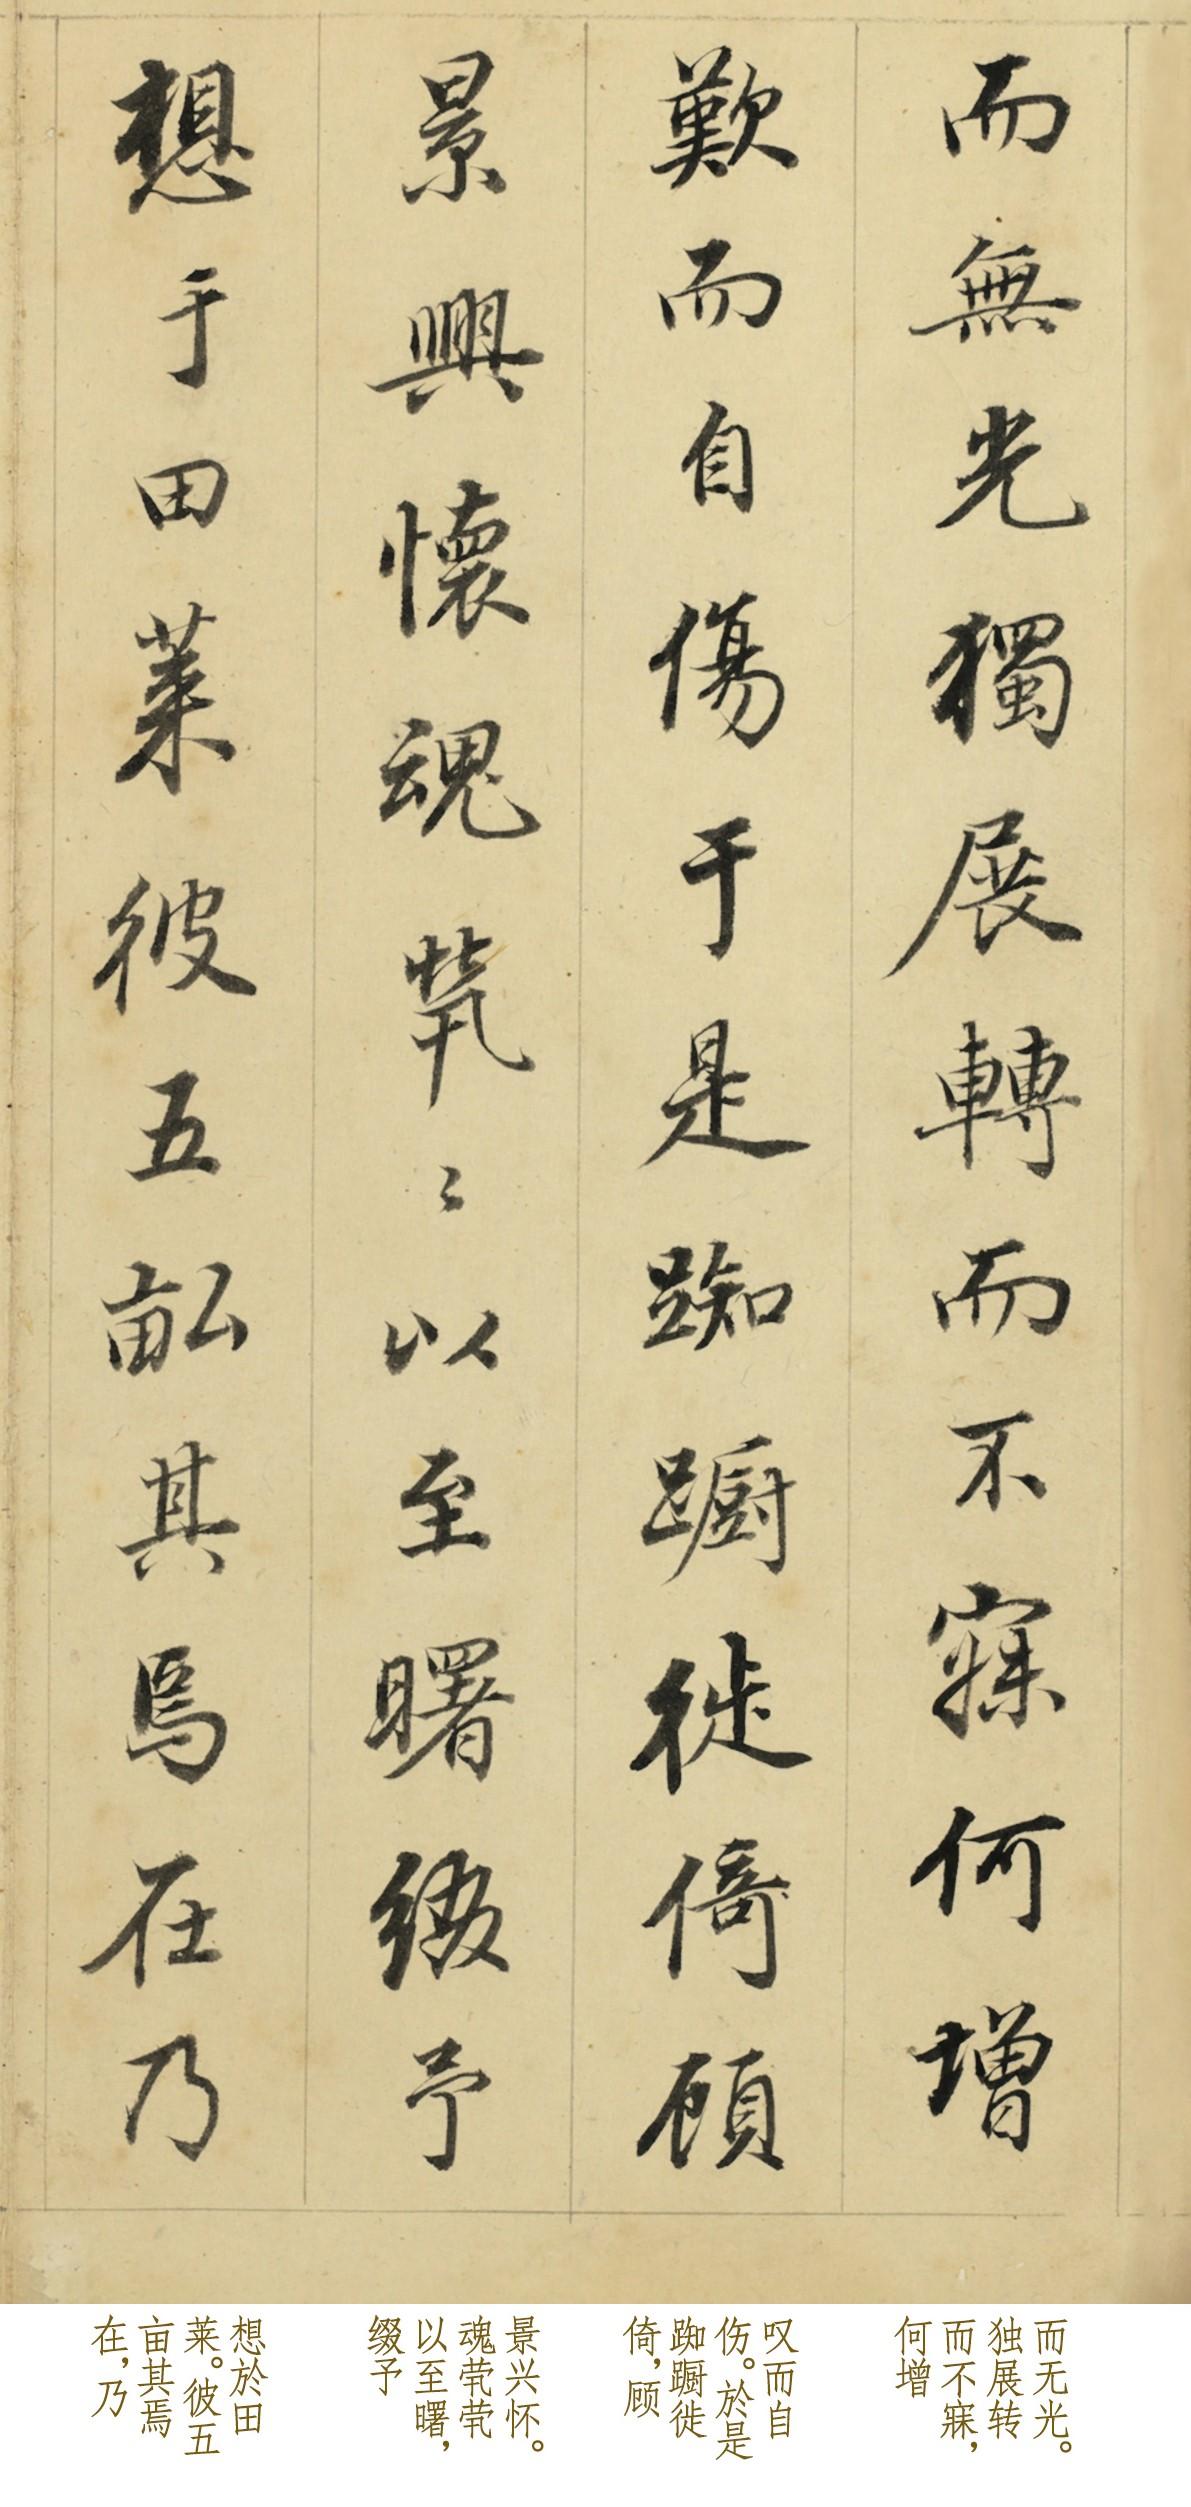 而無光獨展轉而不寐何增
歎而自傷于是踟蹰徙倚顧
景興懷魂煢〻以至曙綴予
想于田萊彼五畝其焉在乃
而无光。
独展转
而不寐，
何增
叹而自
伤。於是
踟蹰徙
倚，顾
景兴怀。
魂茕茕
以至曙，
缀予
想於田
莱。彼五
亩其焉
在，乃